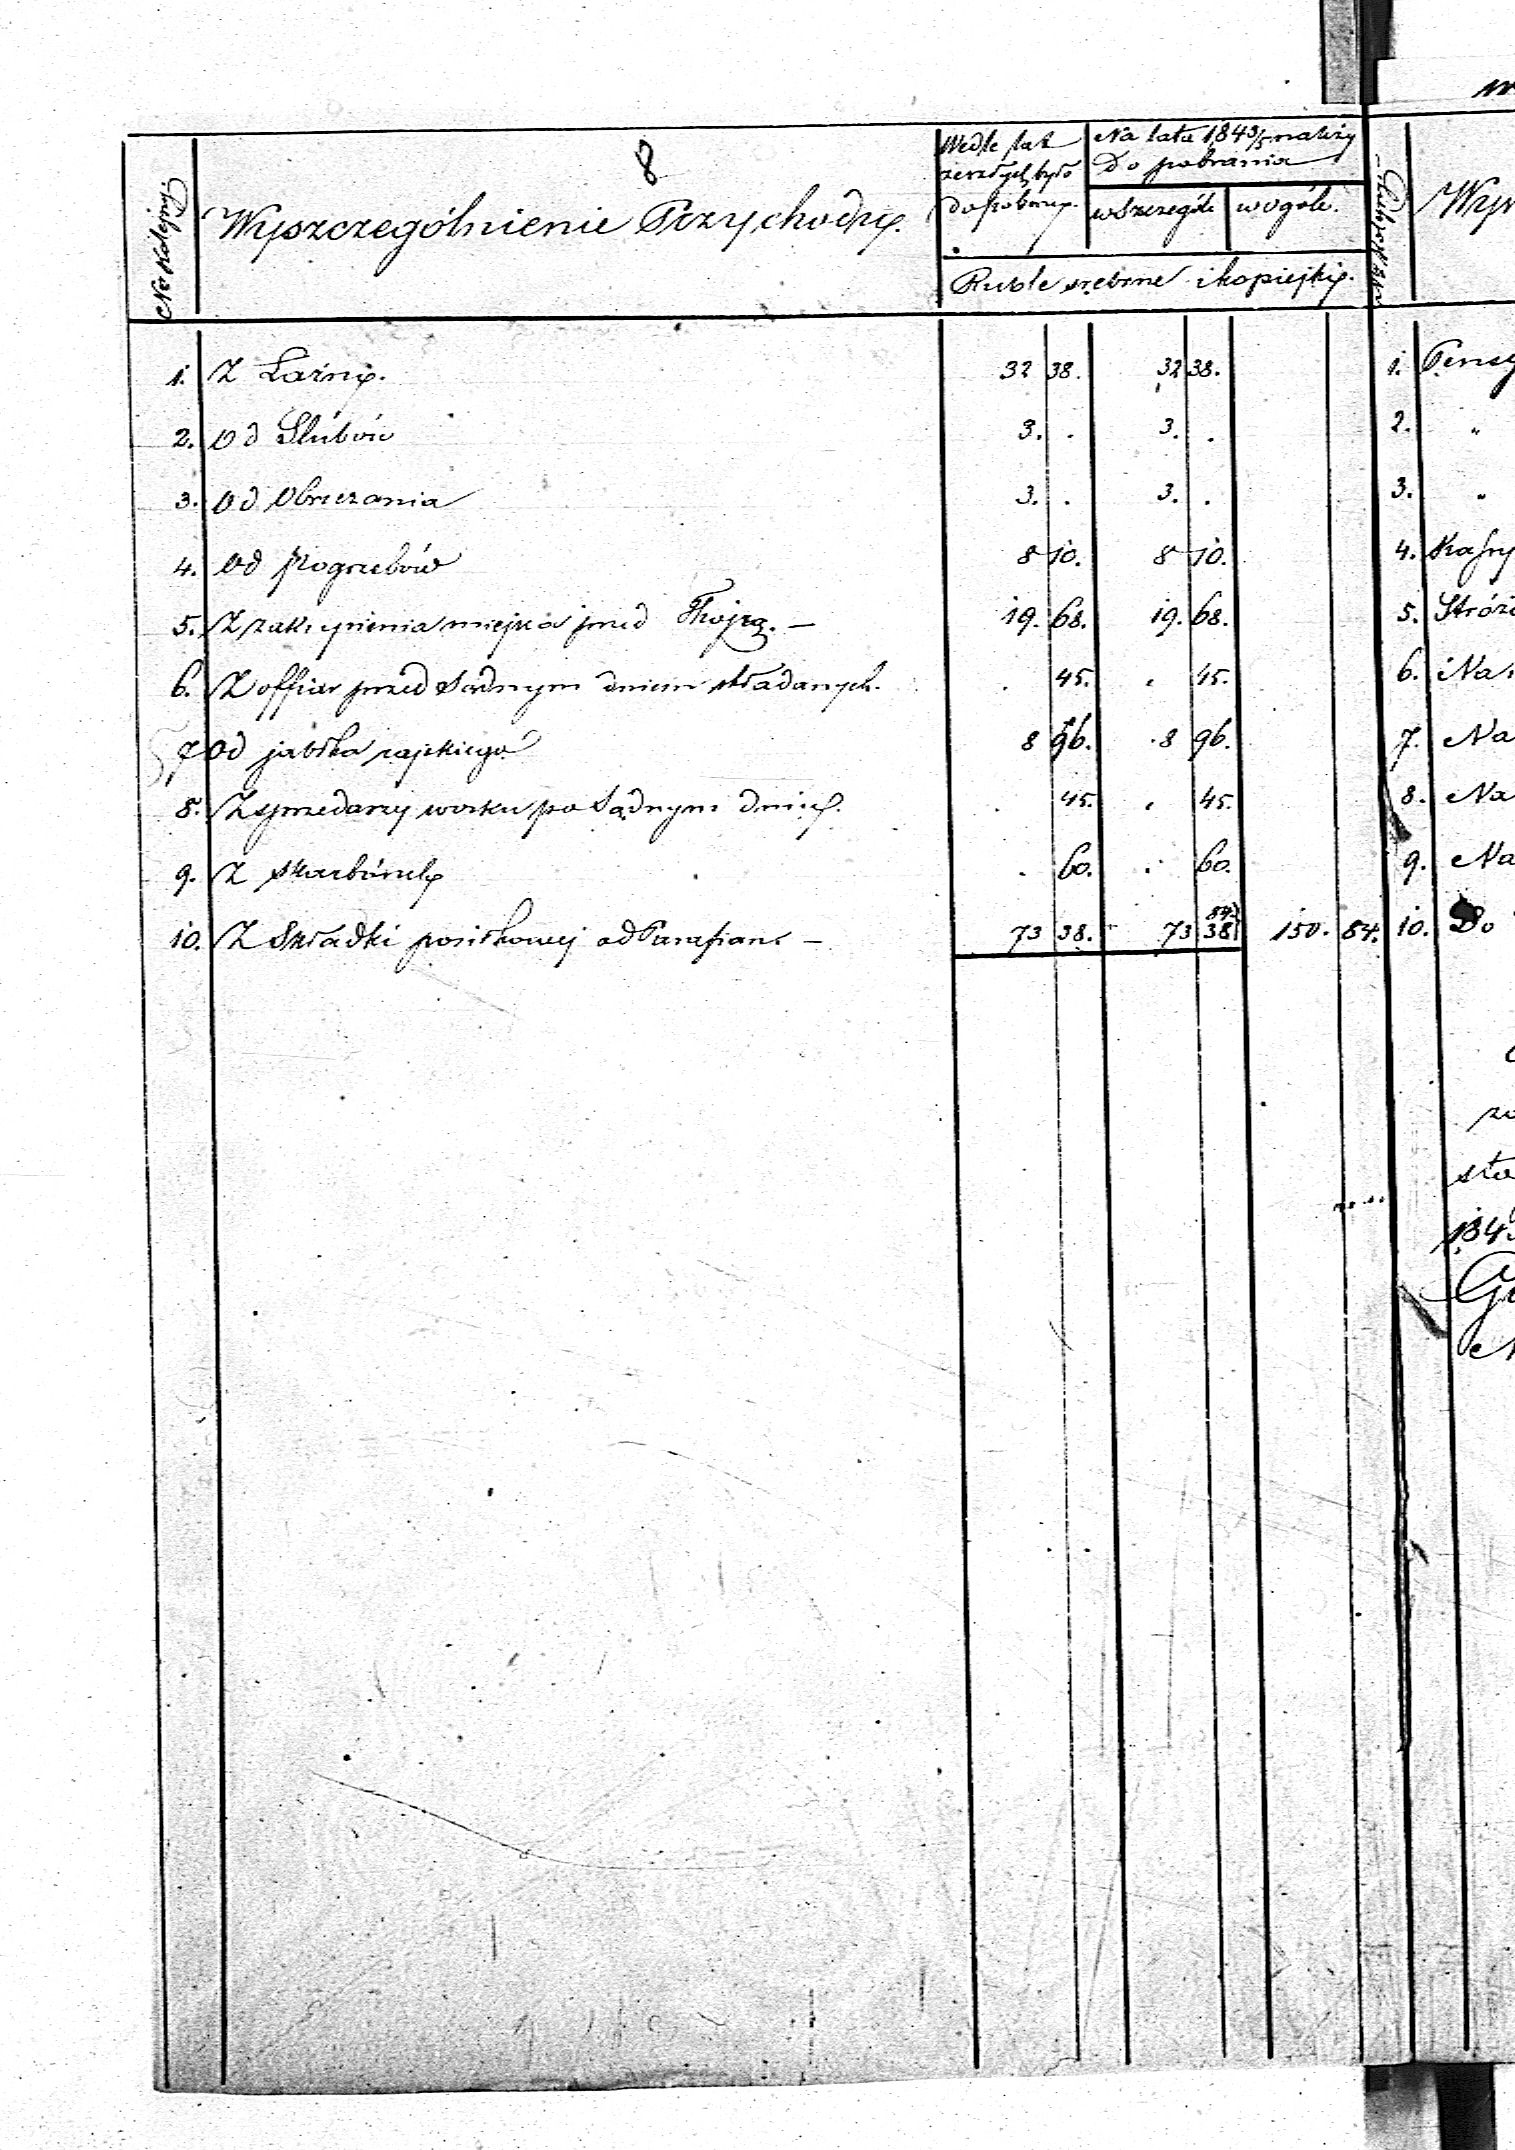 8
No Kolejny.
Wyszczególnienie Przychodu.
Wedle lat
zeszłych było
do pobrania.
Na lata 1843/5 należy
Do pobrania
w szczególe
w ogóle.
Ruble srebrne i kopiejki.
1. Z Łaźni. 32 38. 32 38.
2. Od Slubów 3. . 3. .
3. Od Obrzezania 3. . 3. .
4. Od Pogrzebów 8 10. 8 10.
5. Z zakupienia miejsca przed Thojrą. — 19. 68. 19. 68.
6. Z offiar przed Sądnym dniem składanych. . 45. . 45.
7 Od jabłka rajskiego 8 96. 8 96.
8. Z sprzedaży wosku po Sądnym dniu. . 45. . 45.
9. Z skarbónek . 60. . 60.
10. Z Składki posiłkowej od Parafian — 73 38. 73 84. 38 150. 84.
Wys
1. Pensy
2. "
3. "
4.
5. Stróżo
6. Na
7. Na
8. Na
9. Na
10. Do